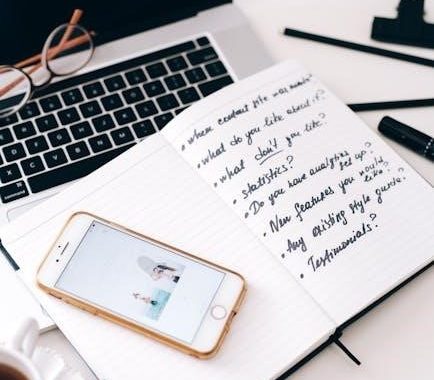 • When content site was made?
• what do you like about it?
• what don't you like?
• statistics?
• Do you have analytics set up?
• New features you would like?
• Any existing style guide?
• Testimonials?